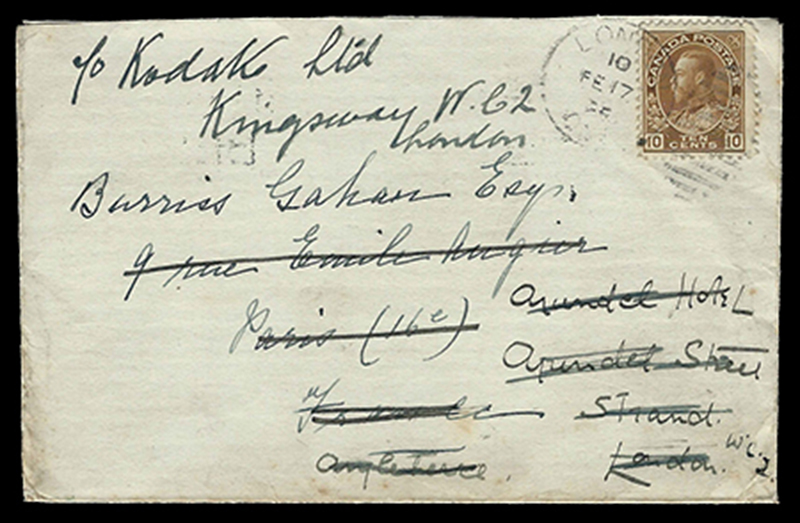 c/o Kodak Ltd
Kingsway W.C2
London
Burriss Gahan Esq.
9 rue Emile Augier
Paris (16e)
France
Angleterre.
Arundel Hotel
Arundel Stree
Strand.
London. W.C.2.
LON
10
FE 17
CANADA POSTAGE
10 TEN CENTS 10